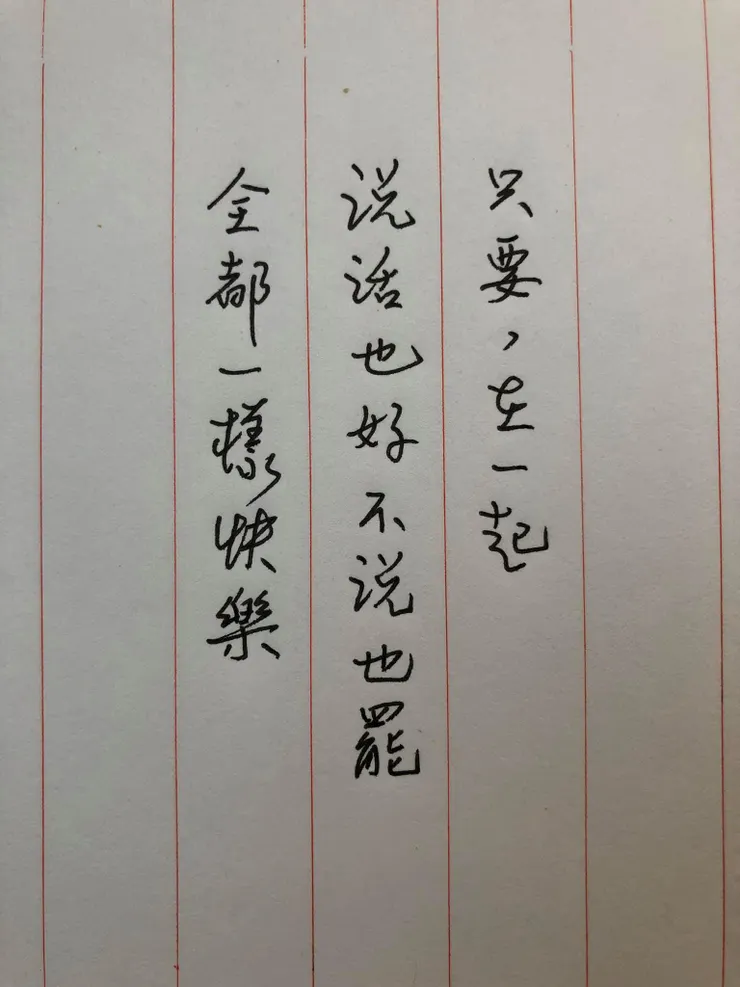 只要，在一起
说话也好不说也罷
全都一樣快樂